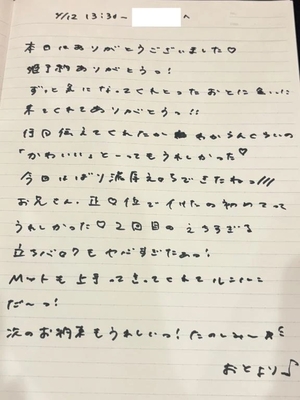 4/12 13:30~ へ
本日はありがとうございました♡
姫予約ありがとうっ!
ずっと気になってくれとったおとに会いに
来てくれてありがとうっ!!
何回伝えてくれたか わからんくらいの
「かわいい」とーってもうれしかった♡
今日はばり濃厚えちできたねっ///
お兄さん、正〇位でイけたの初めてって
うれしかった♡2回目のえろすぎる
立ちバ〇クもやばすぎたぁっ!
Mットも上手って言ってくれてルンルン
だ〜っ!
次のお約束もうれしいっ!たのしみ〜
おとより♪